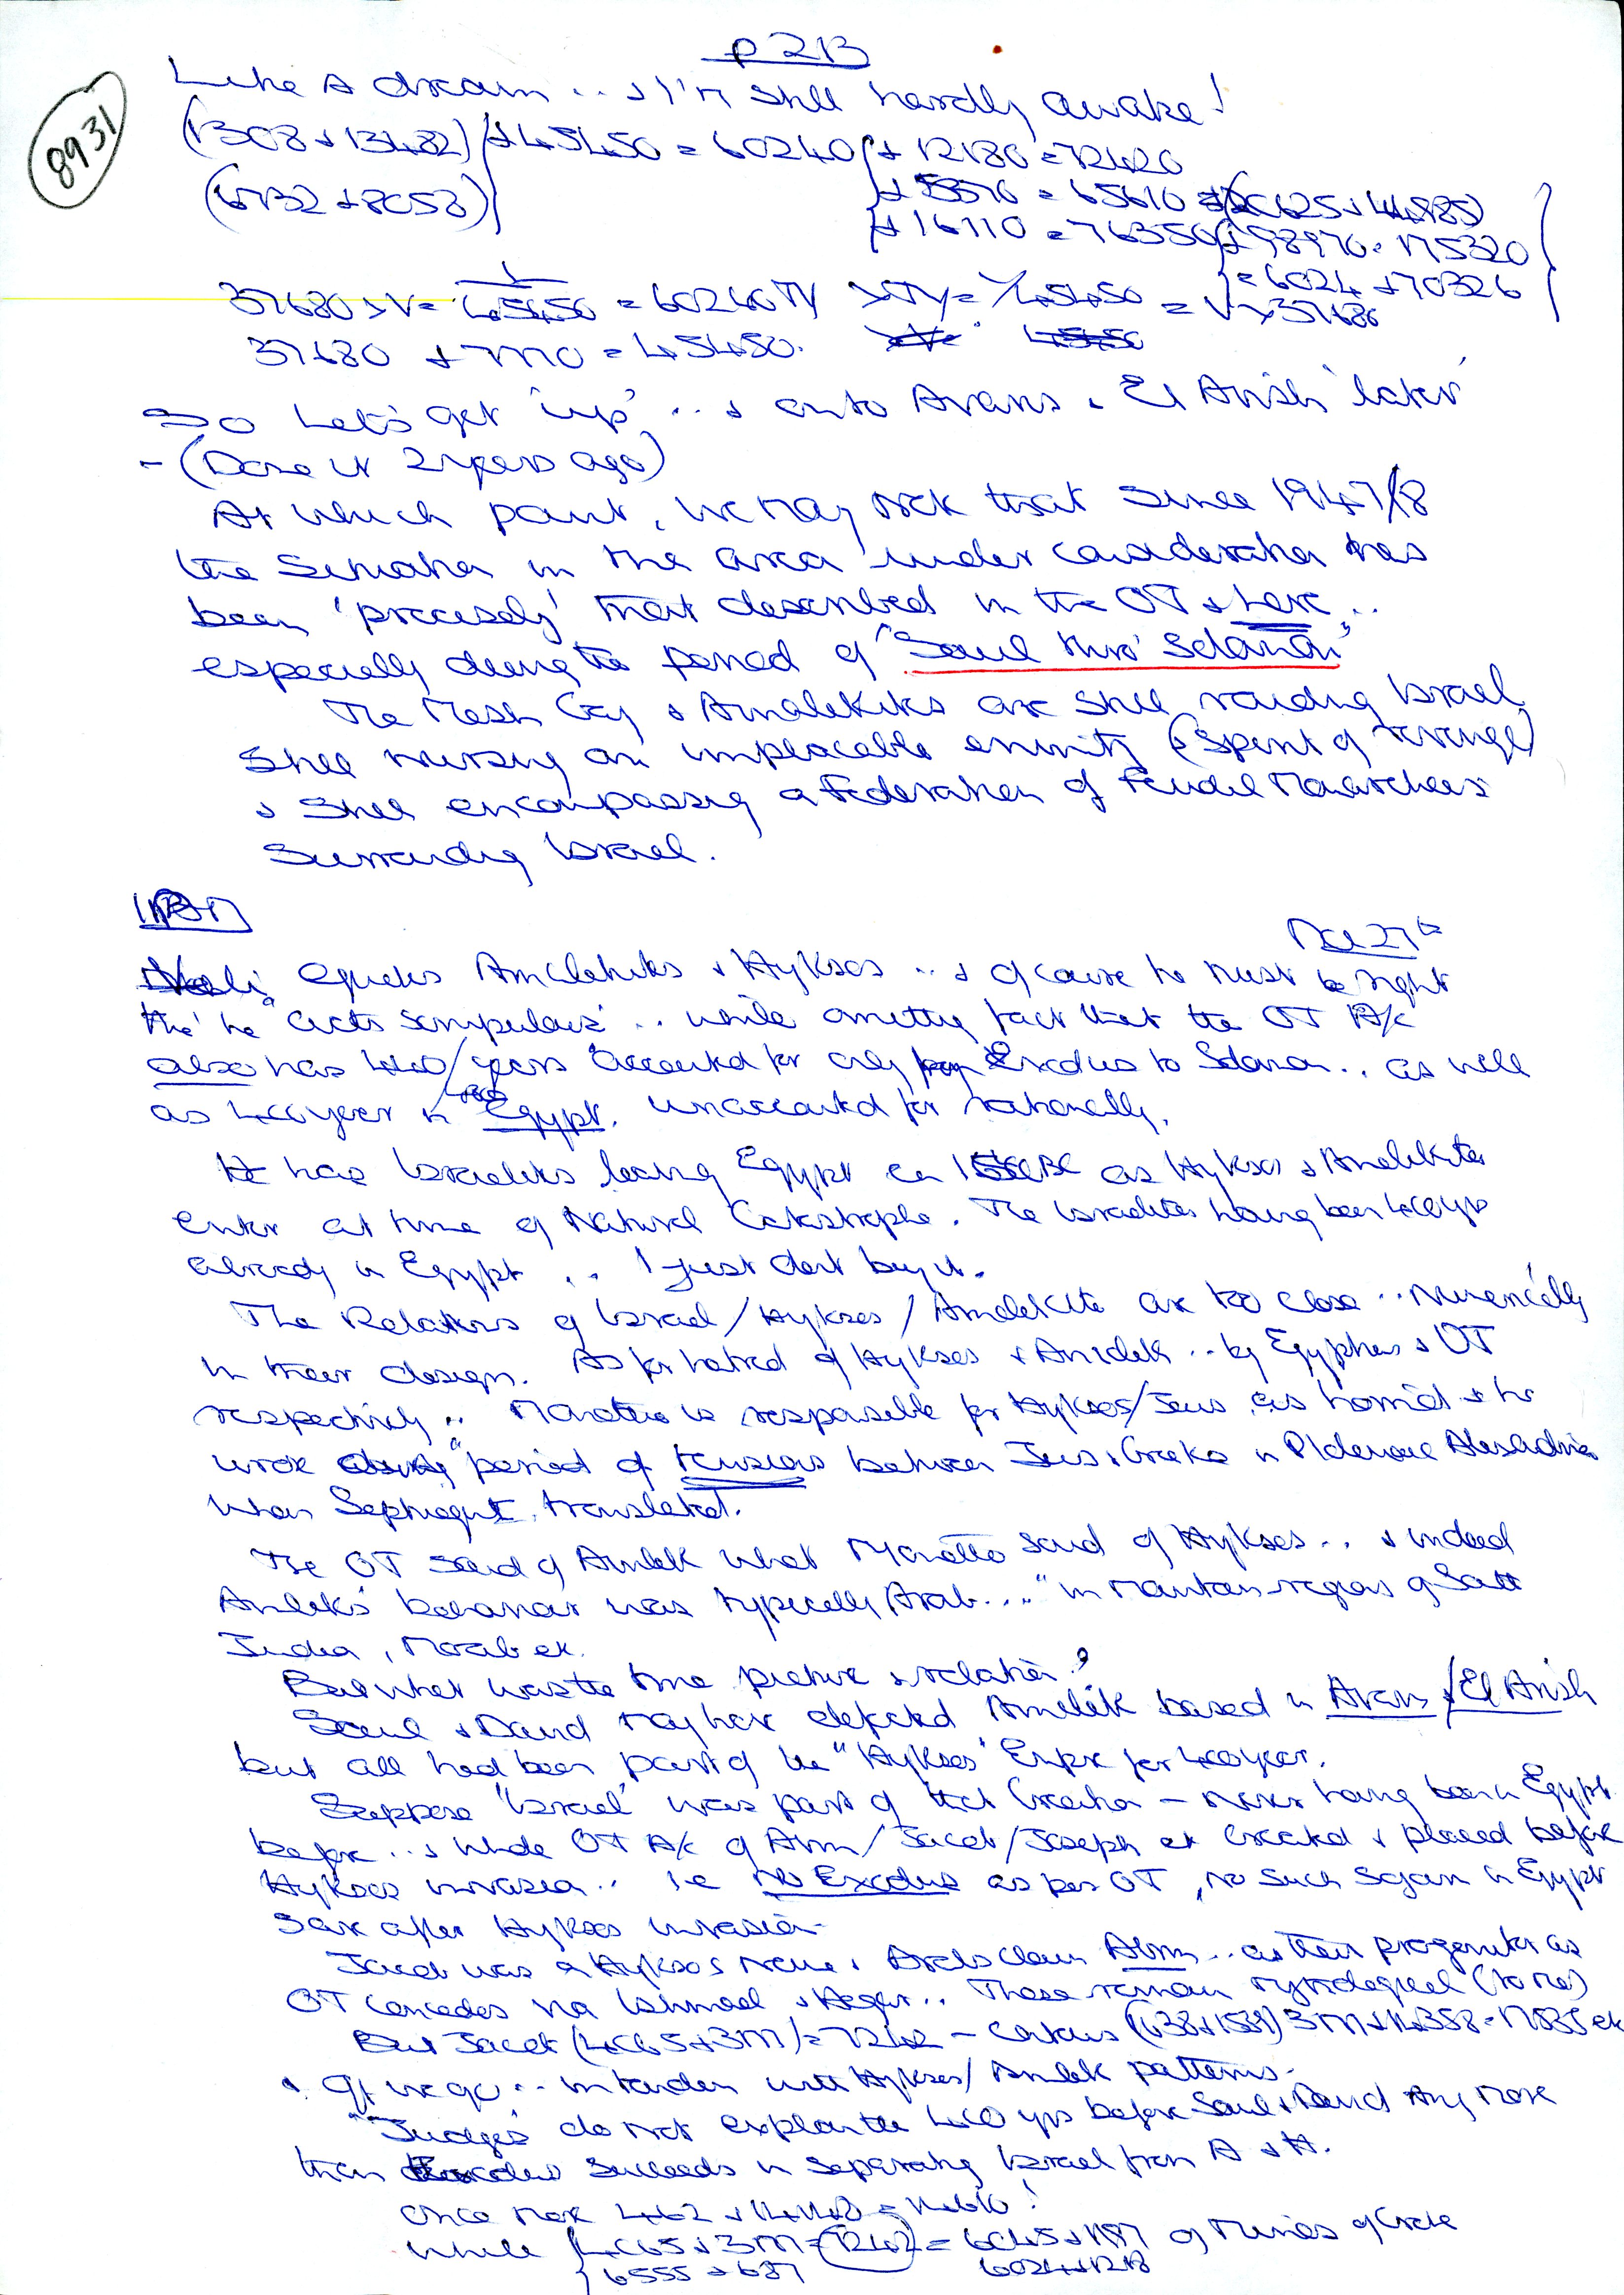 p 213
8931
Like a dream .. & I'm still hardly awake!
(1308 + 13482) } + 45450 = 60240 { + 12180 = 72420
(6732 + 8058) } { + 5370 = 65610
{ + 16110 = 76350 98970 = 175320
= 6024 + 70326
37680 > V = 45450 = 60240 TY
37680 + 7770 = 45450.
So Let's get 'up' .. & onto Avaris & El Arish 'later'
- (Done it 2 years ago)
At which point, we may note that since 1947/8
the situation in the area under consideration has
been 'precisely' that described in the OT & here ..
especially during the period of "Saul thro' Solomon"
The & Amalekites are still raiding Israel,
still nursing an implacable enmity (& spirit of revenge)
& still encompassing a Federation of Feudal Monarchies
surrounding Israel.
Dec 27th
equates Amalekites & Hyksos .. & of course he must be right
tho' he "cuts scrupulous" .. while omitting fact that the OT A/c
also has 400/ years accounted for only Exodus to Solomon .. as well
as 400 years in Egypt, unaccounted for rationally.
He has Israelites leaving Egypt as Hyksos & Amalekites
enter at time of Natural Catastrophe. The Israelites having been 400 yrs
already in Egypt .. I just don't buy it.
The Relations of Israel/Hyksos/Amalekite are too close .. numerically
in their design. As for hatred of Hyksos & Amalek .. by Egyptians & OT
respectively .. Manetho is responsible for Hyksos/Jews as horrid & he
wrote during "period of tensions between Jews & Greeks in Ptolemaic Alexandria
when Septuagint translated.
The OT said of Amalek what Manetho said of Hyksos .. & indeed
Amalek's behaviour was typically Arab .. "in mountain regions of South
Judea, Moab etc.
But what was the time picture & relation?
Saul & David may have defeated Amalek based in Avaris & El Arish
but all had been part of the "Hyksos" Empire for 400 years.
Suppose 'Israel' was part of that Creation - never having been in Egypt
before .. & whole OT A/c of Abm/Jacob/Joseph etc created & placed before
Hyksos invasion .. i.e. No Exodus as per OT, no such sojourn in Egypt
save after Hyksos invasion.
Jacob was a Hyksos name, Arabs claim Abm .. as their progenitor as
OT concedes via Ishmael & Hagar .. These remain mythological (to me)
But Jacob (4065 + 3177) = 7242 - contains
& off we go .. in tandem with Hyksos/Amalek patterns.
"Judges" do not explain the 400 yrs before Saul & David any more
than Exodus succeeds in separating Israel from A & H.
Once more
while { 4065 + 3177 = 7242 = 6045 + 1197 of of Circle
{ 6555 + 687 6024 + 1218